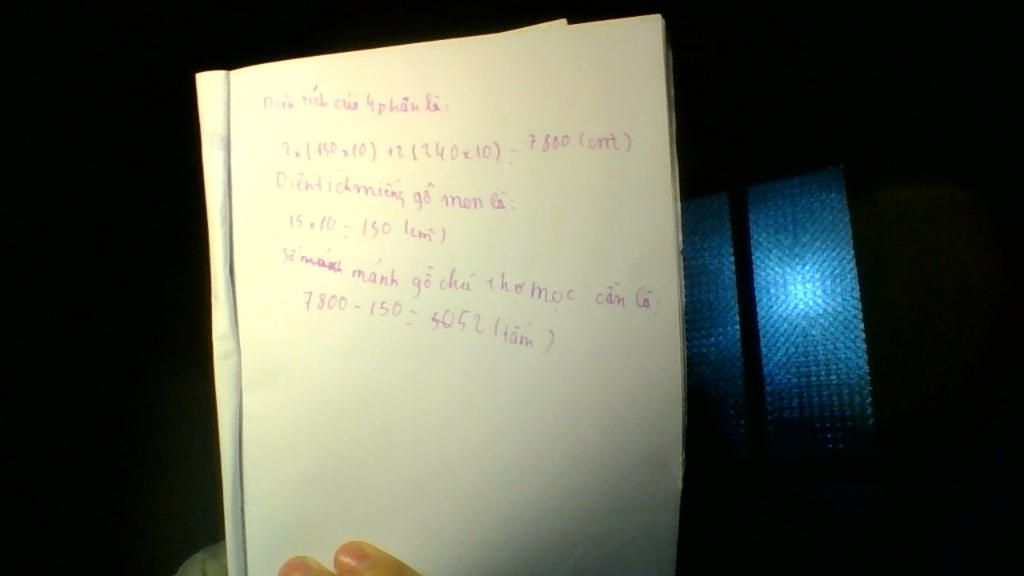 Diện tích của 4 phần là:
2 x (150 x 10) + 2 (240 x 10) = 7800 (cm²)
Diện tích miếng gỗ men là:
15 x 10 = 150 (cm²)
Số mảnh gỗ chú thợ mọc cần là:
7800 - 150 = 52 (tấm)